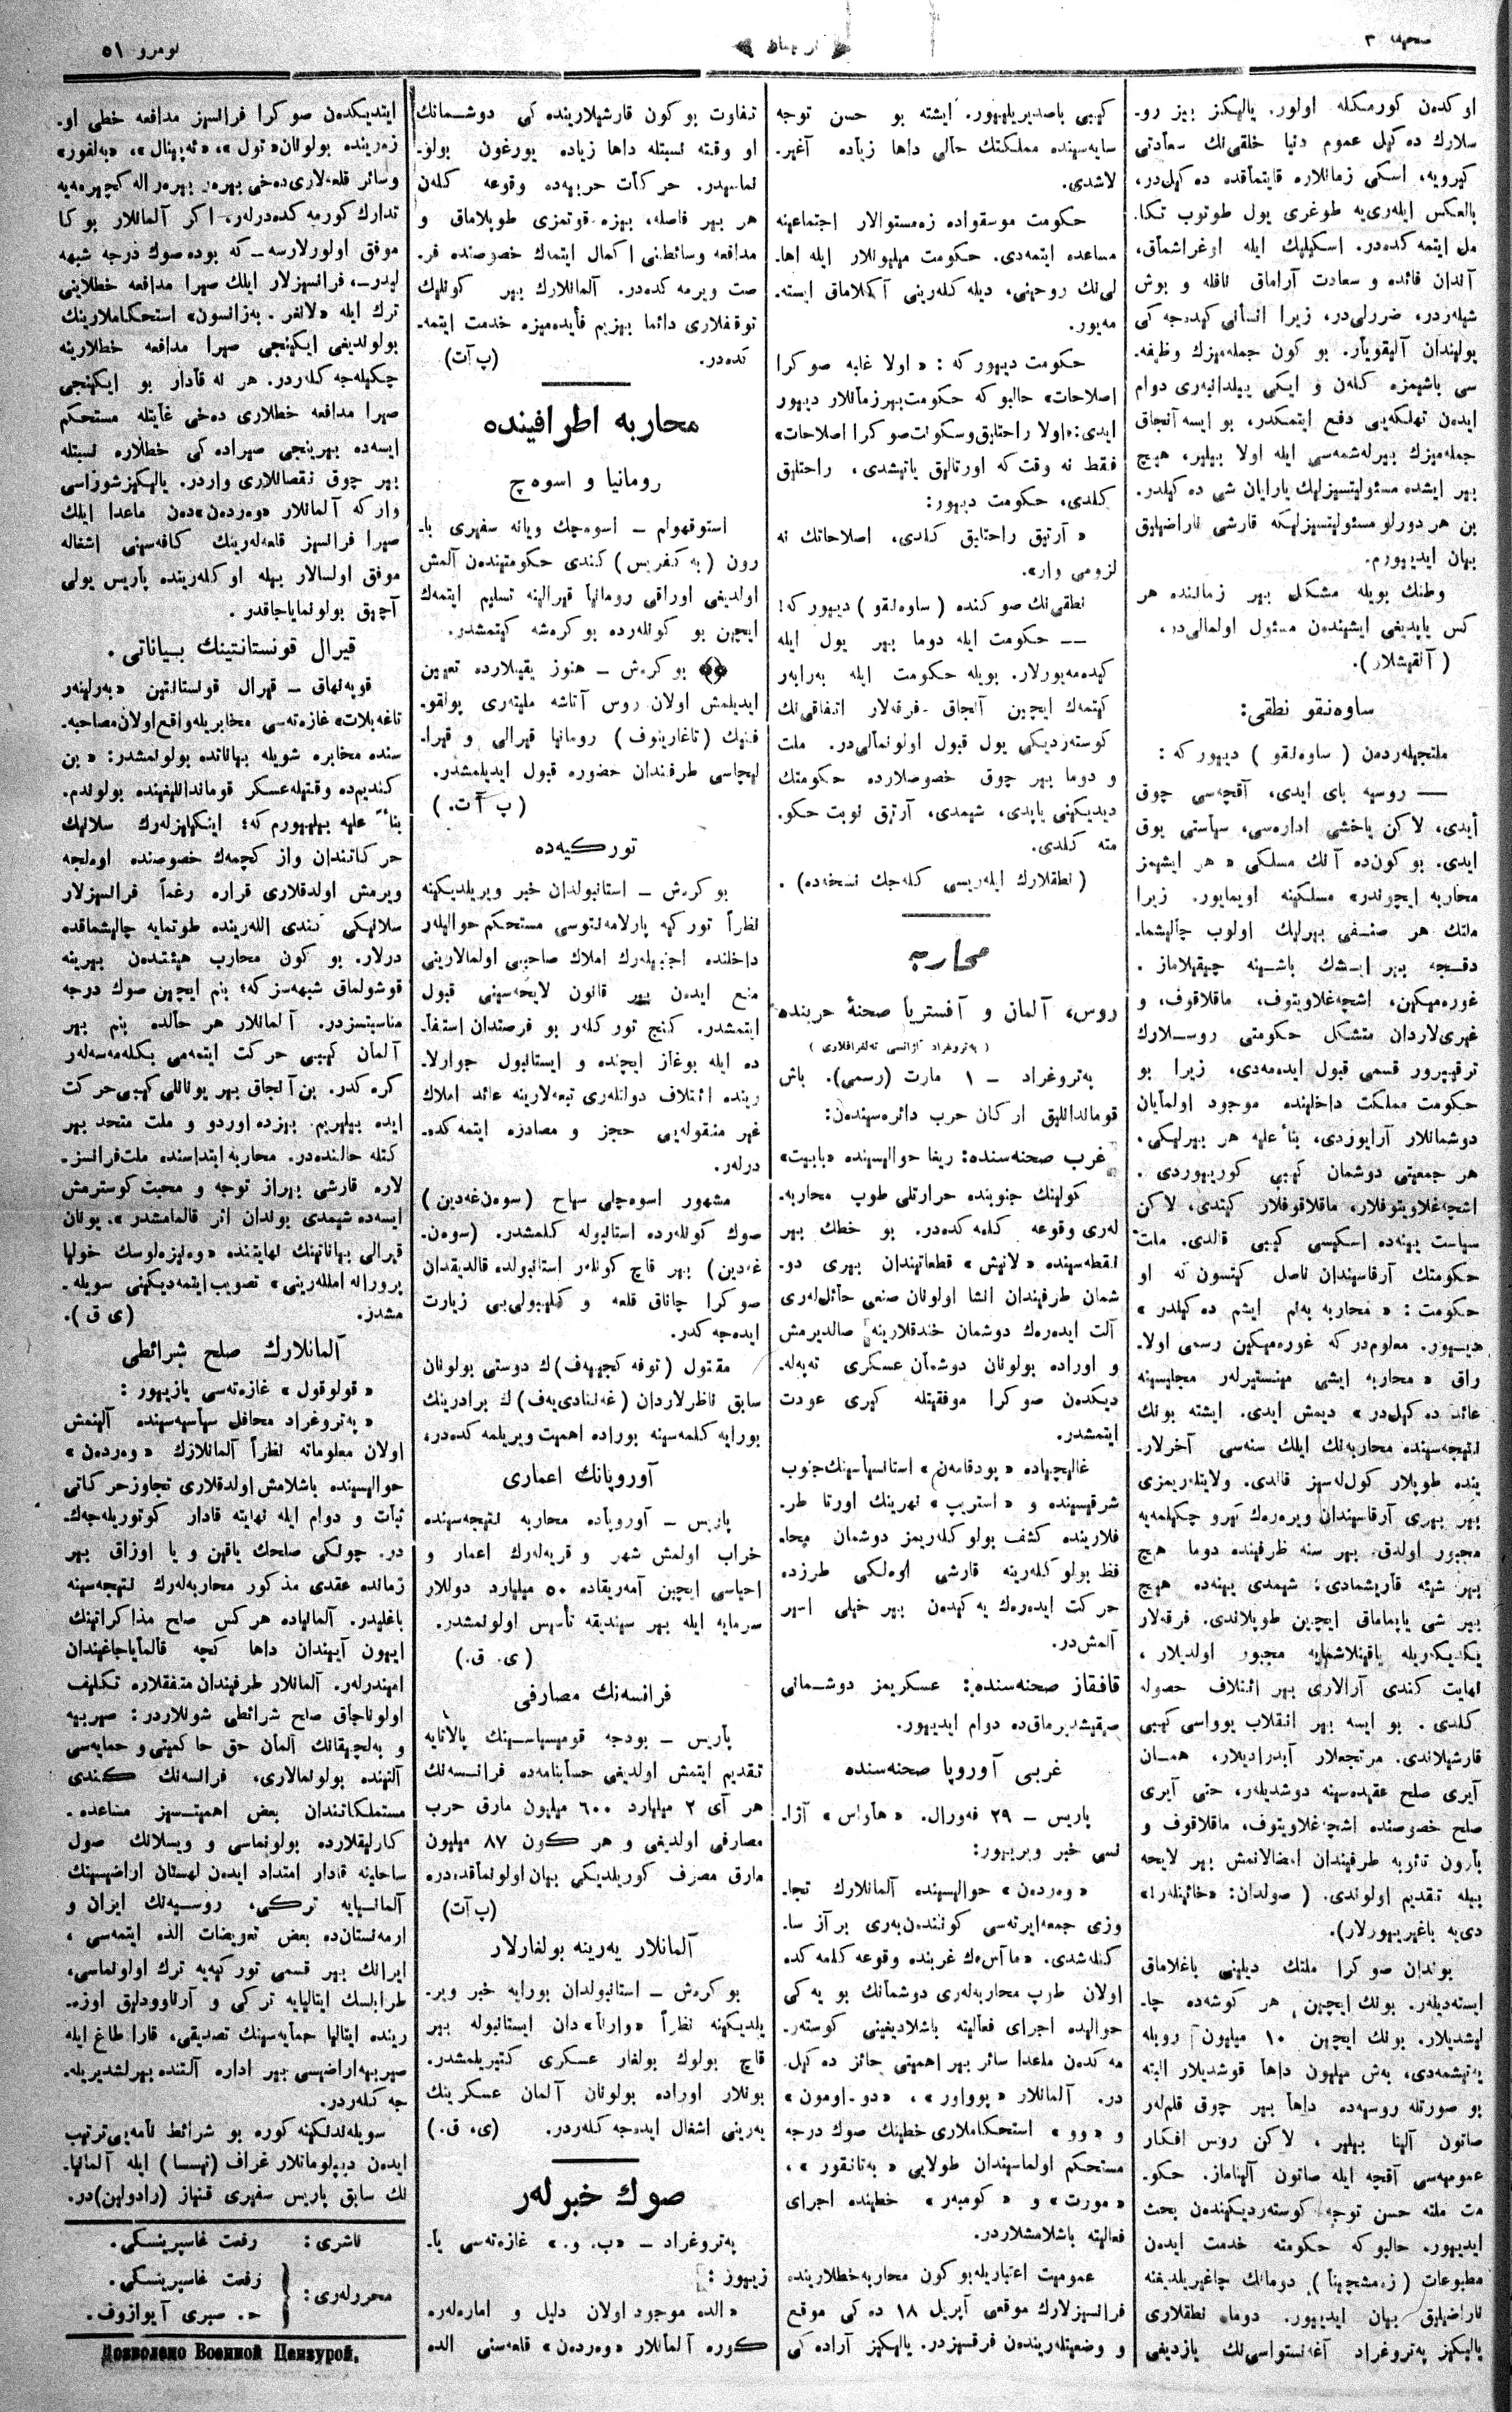 صحیفه ۳
ترجمان
نومرو ۵۱
او كدەن كورمكله اولور. یالیكز بیز رو-
سلارك دەكیل عموم دنیا خلقی‌نك سعادتی
كیرویه، اسكی زمانلارە قایتمآقدە دەكیل‌در،
بالعكس ایلەری‌یه طوغری یول طوتوب تكا-
مل ایتمه كدەدر. اسكیلیك ایله اوغراشمآق،
آندان فائده و سعادت آراماق نافله و بوش
شیلەردر، ضررلی‌در، زیرا انسانی كیدرجه كی
یولیندان آلیقویار. بو كون جمله‌میزك وظیفه-
سی باشیمزه كلەن و ایكی ییلدانبەری دوام
ایدەن تهلكه‌یی دفع ایتمكدر، بو ایسه آنجاق
جمله‌میزك بیرلەشمەسی ایله اولا بیلیر، هیچ
بیر ایشده مسئولیتسیزلیك یارایان شی دەكیلدر.
بن هر دورلو مسئولیتسیزلیكه قارشی ناراضیلیق
بیان ایدییورم.
وطنك بویله مشكل بیر زماننده هر
كس یاپدیغی ایشیندەن مسئول اولمالی‌در،
( آلقیشلار).
ساوەنقو نطقی:
ملتجیلەردەن ( ساوەنقو ) دییور كه :
— روسیه بای ایدی، آقچەسی چوق
أیدی، لاكن یاخشی ادارەسی، سیاستی یوق
ایدی. بو كون‌ده آنك مسلكی « هر ایشیمز
محاربه ایچوندر» مسلكینه اویمایور. زیرا
ملتك هر صنفی بیرلیك اولوب چالیشما-
دقجه بیر ایشك باشینه چیقیلاماز .
غورەمیكین، اشچەغلاویتوف، ماقلاقوف، و
غیری‌لاردان متشكل حكومتی روسلارك
ترقیپرور قسمی قبول ایدەمەدی، زیرا بو
حكومت مملكت داخلیندە موجود اولمایان
دوشمانلار آرایوردی، بناءً علیه هر بیرلیكی،
هر جمعیتی دوشمان كیبی كوریوردی .
اشچەغلاویتوفلار، ماقلاقوفلار كیتدی، لاكن
سیاست یینەدە اسكیسی كیبی قالدی. ملت
حكومتك آرقاسیندان ناصل كیتسون كه او
حكومت : « محاربه بەنم ایشم دەكیلدر »
دییور. معلوم‌در كه غورەمیكین رسمی اولا-
راق « محاربه ایشی مینستیرلەر مجلیسینه
عائد دەكیل‌در » دیمش ایدی. ایشته بونك
نتیجەسیندە محاربەنك ایلك سنەسی آخرلار-
یندە طوپلار كوللەسیز قالدی. ولایتلەریمزی
بیر بیری آرقاسیندان ویرەرەك كیرو چكیلمەیه
مجبور اولدق. بیر سنه ظرفیندە دوما هیچ
بیر شیئه قاریشمادی؛ شیمدی یینەدە هیچ
بیر شی یاپماماق ایچین طوپلاندی. فرقەلار
یكدیكریله یاقینلاشمایه مجبور اولدیلار ،
نهایت كندی آرالاری بیر ائتلاف حصوله
كلدی . بو ایسه بیر انقلاب یوواسی كیبی
قارشیلاندی. مرتجعلار آیدرادیلار، همان
آیری صلح عقیدەسینه دوشدیلەر، حتی آیری
صلح خصوصندە اشچەغلاویتوف، ماقلاقوف و
بارون تاوبه طرفیندان امضالانمش بیر لایحه
بیله تقدیم اولوندی. ( صولدان: «خائینلەر!»
دی‌یه باغیرییورلار).
بوندان صوكرا ملتك دیلینی باغلاماق
ایستەدیلەر. بونك ایچین هر كوشەدە چا-
لیشدیلار. بونك ایچین ۱۰ میلیون روبله
یەتیشمەدی، بەش میلیون داها قوشدیلار البته
بو صورتله روسیەدە داها بیر چوق قلم‌لەر
صاتون آلینا بیلیر ، لاكن روس افكار
عمومیەسی آقچه ایله صاتون آلیناماز. حكو-
مت ملته حسن توجه كوستەردیكیندەن بحث
ایدییور. حالبوكه حكومته خدمت ایدەن
مطبوعات ( زەمشچینا ) دومانك چاغیریلدیغنه
ناراضیلیق بیان ایدییور. دوماه نطقلاری
یالیكز پەتروغراد آغەنستواسی‌نك یازدیغی
كیبی باصدیریلییور. ایشته بو حسن توجه
سایەسیندە مملكتك حالی داها زیاده آغیر-
لاشدی.
حكومت موسقواده زەمستوالار اجتماعینه
مساعده ایتمەدی. حكومت میلیونلار ایله اها-
لی‌نك روحینی، دیله كلەرینی آكلاماق ایسته-
مەیور.
حكومت دییور كه : « اولا غلبه صوكرا
اصلاحات» حالبوكه حكومت بیر زمانلار دییور
ایدی: «اولا راحتلیق و سكونت صوكرا اصلاحات»
فقط نه وقت كه اورتالیق یاتیشدی، راحتلیق
كلدی، حكومت دییور:
« آرتیق راحتلیق كلدی، اصلاحاتك نه
لزومی وار».
نطقی‌نك صوكنده ( ساوەنقو ) دییور كه:
— حكومت ایله دوما بیر یول ایله
كیدەمەیورلار. بویله حكومت ایله بەرابەر
كیتمەك ایچین آنجاق فرقەلار اتفاقی‌نك
كوستەردیكی یول قبول اولونمالی‌در. ملت
و دوما بیر چوق خصوصلاردە حكومتك
دیدیكینی یاپدی، شیمدی، آرتیق نوبت حكو-
مته كلدی.
( نطقلارك ایلەریسی كلەجك نسخەدە) .
محاربه
روس، آلمان و آفستریا صحنهٔ حربنده
( پەتروغراد آژانسی تەلغرافلاری )
پەتروغراد – ۱ مارت (رسمی). باش
قوماندانلیق اركان حرب دائرەسیندەن:
غرب صحنەسنده: ریغا حوالیسیندە «بابیت»
كولینك جنوبندە حرارتلی طوپ محاربه-
لەری وقوعه كلمه كدەدر. بو خطك بیر
نقطەسیندە « لاتیش » قطعاتیندان بیری دو-
شمان طرفیندان انشا اولونان صنعی حائل‌لەری
آلت ایدەرەك دوشمان خندقلارینه صالدیرمش
و اورادە بولونان دوشمان عسكری تەپەله-
دیكدەن صوكرا موفقیتله كیری عودت
ایتمشدر.
غالیچیاده « بودقامەن » استانسیاسینك جنوب
شرقیسیندە و « استریپ » نهرینك اورتا طر-
فلاریندە كشف بولوكلەریمز دوشمان محا-
فظ بولوكلەرینه قارشی اوەلكی طرزده
حركت ایدەرەك یەكیدەن بیر خیلی اسیر
آلمش‌در.
قافقاز صحنەسنده: عسكریمز دوشمانی
صیقیشدیرماق‌ده دوام ایدییور.
غربی آوروپا صحنەسنده
پاریس – ۲۹ فەورال. « هاواس » آژا-
نسی خبر ویرییور:
« وەردەن » حوالیسیندە آلمانلارك تجا-
وزی جمعه ایرتەسی كونندەن‌بەری بر آز سا-
كنلەشدی. «ماآس»ك غربنده وقوعه كلمه كدە
اولان طوپ محاربەلەری دوشمانك بو یەكی
حوالیدە اجرای فعالیته باشلادیغینی كوستەر-
مه كدەن ماعدا سائر بیر اهمیتی حائز دەكیل-
در. آلمانلار « بوواور» ، «دو-اومون»
و «وو» استحكاملاری خطینك صوك درجه
مستحكم اولماسیندان طولایی « بەتانقور» ،
«مورت» و « كومیەر» خطیندە اجرای
فعالیته باشلامشلاردر.
عمومیت اعتباریله بو كون محاربه خطلاریندە
فرانسیزلارك موقعی آپریل ۱۸ دەكی موقع
و وضعیتلەریندەن فرقسیزدر. یالیكز آرادەكی
تفاوت بو كون قارشیلاریندە كی دوشمانك
او وقته نسبتله داها زیاده یورغون بولو-
نماسیدر. حركآت حربیەدە وقوعه كلەن
هر بیر فاصله، بیزه قوتمزی طوپلاماق و
مدافعه وسائطنی اكمال ایتمك خصوصنده فر-
صت ویرمه كدەدر. آلمانلارك بیر كونلیك
توقفلاری دائما بیزیم فآیدەمیزه خدمت ایتمه-
كدەدر. (پ آت)
محاربه اطرافینده
رومانیا و اسوەچ
استوقهولم – اسوەچك ویانه سفیری با-
رون (بەكفریس) كندی حكومتیندەن آلمش
اولدیغی اوراقی رومانیا قیرالینه تسلیم ایتمەك
ایچین بو كونلەرده بوكرەشه كیتمشدر.
بوكرەش – هنوز یقیلاردە تعیین
ایدیلمش اولان روس آتاشه ملیتەری پولقو-
فنیك (تاتارینوف) رومانیا قیرالی و قیرا-
لیچاسی طرفندان حضوره قبول ایدیلمشدر.
( پ آت. )
توركیەده
بوكرەش – استانبولدان خبر ویریلدیكینه
نظراً توركیه پارلامەنتوسی مستحكم حوالیلەر
داخلنده اجنبیلەرك املاك صاحبی اولمالارینی
منع ایدەن بیر قانون لایحەسینی قبول
ایتمشدر. كنج توركلەر بو فرصتدان استفا-
ده ایله بوغاز ایچنده و ایستانبول جوارلا-
رینده ائتلاف دولتلەری تبعەلارینه عائد املاك
غیر منقولەیی حجز و مصادره ایتمه كدە-
درلەر.
مشهور اسوەچلی سیاح (سوەن‌غەدین)
صوك كونلەردە استانبوله كلمشدر. (سوەن-
غەدین) بیر قاچ كونلەر استانبولده قالدیقدان
صوكرا چاناق قلعه و كلیبولی‌یی زیارت
ایدەجه كدر.
مقتول (توفه كجییەف)ك دوستی بولونان
سابق ناظرلاردان (غەنادی‌یەف)ك برادرینك
بورایه كلمەسینه بوراده اهمیت ویریلمه كدەدر.
آوروپانك اعماری
پاریس – آوروپاده محاربه نتیجەسینده
خراب اولمش شهر و قریەلەرك اعمار و
احیاسی ایچین آمەریقاده ۵۰ میلیارد دوللار
سرمایه ایله بیر سیندیقه تأسیس اولونمشدر.
(ی. ق.)
فرانسەنك مصارفی
پاریس – بودجه قومیسیاسینك پالاتایه
تقدیم ایتمش اولدیغی حسابنامەدە فرانسەنك
هر آی ۲ میلیارد ۶۰۰ میلیون مارق حرب
مصارفی اولدیغی و هر كون ۸۷ میلیون
مارق مصرف كوریلدیكی بیان اولونمآقدەدر.
(پ آت)
آلمانلار یەرینه بولغارلار
بوكرەش – استانبولدان بورایه خبر ویر-
یلدیكینه نظراً «وارنا» دان ایستانبوله بیر
قاچ بولوك بولغار عسكری كتیریلمشدر.
بونلار اوراده بولونان آلمان عسكرینك
یەرینی اشغال ایدەجه كلەردر. (ی، ق.)
صوك خبرلەر
پەتروغراد – «ب. و.» غازەتەسی یا-
زییور:
« الده موجود اولان دلیل و امارەلەره
كوره آلمانلار «وەردەن» قلعەسنی الده
ایتدیكدەن صوكرا فرانسیز مدافعه خطی او-
زەرینده بولونان «تول»، «ئەپینال»، «بەلفور»
و سائر قلعەلاری دەخی بیرەر بیرەر اله كچیرمەیه
تدارك كورمه كدەدرلەر، اكر آلمانلار بوكا
موفق اولورلارسه – كه بوده صوك درجه شبهه
لیدر –، فرانسیزلار ایلك صیرا مدافعه خطلاینی
ترك ایله «لانغر - بەزانسون» استحكاملارینك
بولولدیغی ایكینجی صیرا مدافعه خطلارینه
چكیلەجه كلەردر. هر نه قادار بو ایكینجی
صیرا مدافعه خطلاری دەخی غایتله مستحكم
ایسەدە بیرینجی صیرادەكی خطلاره نسبتله
بیر چوق نقصانلاری واردر. یالیكز شوراسی
وار كه آلمانلار «وەردەن»دەن ماعدا ایلك
صیرا فرانسیز قلعەلەرینك كافەسینی اشغاله
موفق اولسالار بیله اوكلەریندە پاریس یولی
آچیق بولونمایاجاقدر .
قیرال قونستانتینك بیاناتی .
قوپەنهاق – قیرال قونستانتین «بەرلینەر
تاغەبلات» غازەتەسی مخابریله واقع اولان مصاحبه-
سنده مخابره شویله بیاناتده بولونمشدر: « بن
كندیم‌ده وقتیله عسكر قوماندانلیغینده بولوندم.
بناءً علیه بیلییورم كه؛ اینكلیزلەرك سلانیك
حركاتندان واز كچمەك خصوصندە اوەلجه
ویرمش اولدقلاری قراره رغماً فرانسیزلار
سلانیكی كندی اللەریندە طوتمایه چالیشماقدە
درلار. بو كون محارب هیئتدەن بیرینه
قوشولماق شبهەسز كه؛ بنم ایچین صوك درجه
مناسبتسزدر. آلمانلار هر حالده بنم بیر
آلمان كیبی حركت ایتمەمی بكلەمەسەلەر
كرەكدر. بن آنجاق بیر یونانلی كیبی حركت
ایده بیلیریم. بیزده اوردو و ملت متحد بیر
كتله حالنده‌در. محاربه ابتداسنده ملت فرانسز-
لاره قارشی بیراز توجه و محبت كوسترمش
ایسەدە شیمدی بوندان اثر قالمامشدر». یونان
قیرالی بیاناتینك نهایتنده «وەنیزەلوسك خولیا
پرورانه امللەرینی» تصویب ایتمەدیكینی سویله-
مشدر. (ی ق).
آلمانلارك صلح شرائطی
« قولوقول » غازەتەسی یازییور :
« پەتروغراد محافل سیاسیەسینده آلینمش
اولان معلوماته نظراً آلمانلارك « وەردەن »
حوالیسیندە باشلامش اولدقلاری تجاوز حركاتی
ثبات و دوام ایله نهایته قادار كوتوریلەجەك-
در. چونكی صلحك یاقین و یا اوزاق بیر
زمانده عقدی مذكور محاربەلەرك نتیجەسینه
باغلیدر. آلمانیاده هركس صلح مذاكراتینك
اییون آییندان داها كچه قالمایاجاغیندان
امیندرلەر. آلمانلار طرفیندان متفقلاره تكلیف
اولوناجاق صلح شرائطی شونلاردر: صیربیه
و بەلچیقانك آلمان حق حاكمیتی و حمایەسی
آلتینده بولونمالاری، فرانسەنك كندی
مستملكاتندان بعض اهمیتسیز مساعده-
كارلیقلارده بولونماسی و ویسلانك صول
ساحلینه قادار امتداد ایدەن لهستان اراضیسینك
آلمانیایه تركی، روسیەنك ایران و
ارمەنستان‌ده بعض تعویضات الده ایتمەسی ،
ایرانك بیر قسمی توركیەیه ترك اولونماسی،
طرابلسك ایتالیایه تركی و آرناوودلیق اوزه-
رینده ایتالیا حمایەسینك تصدیقی، قاراطاغ ایله
صیربیه اراضیسی بیر اداره آلتنده بیرلشدیریله-
جه كلەردر.
سویلەندیكینه كوره بو شرائط نامەیی ترتیب
ایدەن دیپلوماتلار غراف (تیسسا) ایله آلمانیا-
نك سابق پاریس سفیری قنیاز (رادولین)در.
ناشری: رفعت غاسپرینسكی.
محررلەری: رفعت غاسپرینسكی.
ح. صبری آیوازوف.
Дозволено Военной Цензурой.